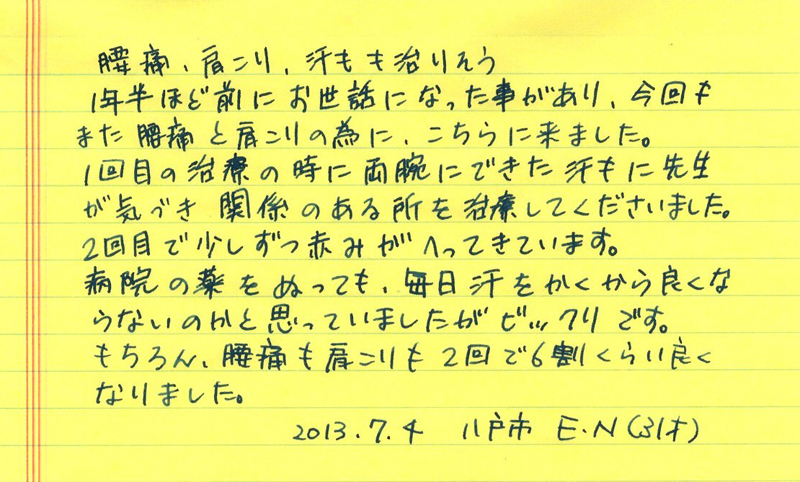 腰痛、肩こり、汗もも治りそう
1年半ほど前にお世話になった事があり、今回も
また腰痛と肩こりの為に、こちらに来ました。
1回目の治療の時に両腕にできた汗もに先生
が気づき関係のある所を治療してくださいました。
2回目で少しずつ赤みがへってきています。
病院の薬をぬっても、毎日汗をかくから良くな
らないのかと思っていましたがビックリです。
もちろん、腰痛も肩こりも2回で6割くらい良く
なりました。
2013.7.4 八戸市 E.N(31才)